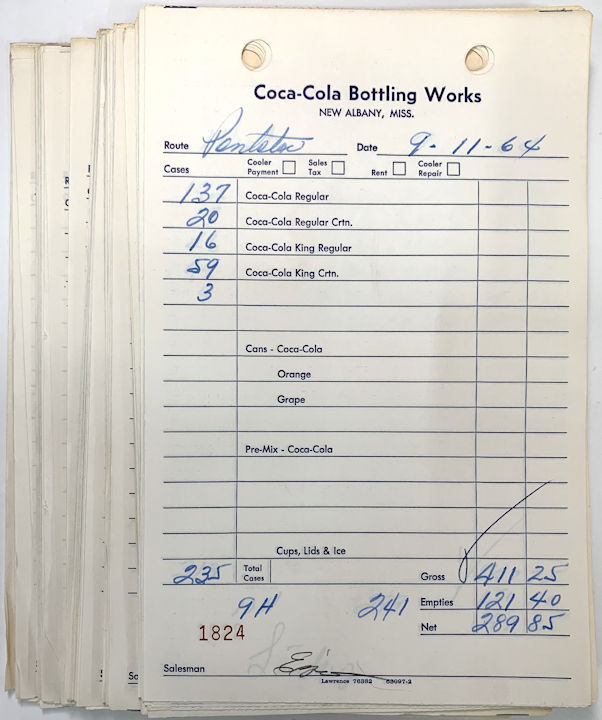 Coca-Cola Bottling Works
NEW ALBANY, MISS.
Route Pontotoc Date 9-11-64
Cases Cooler Payment Sales Tax Rent Cooler Repair
137 Coca-Cola Regular
20 Coca-Cola Regular Crtn.
16 Coca-Cola King Regular
59 Coca-Cola King Crtn.
3
Cans - Coca-Cola
Orange
Grape
Pre-Mix - Coca-Cola
Cups, Lids & Ice
235 Total Cases Gross 411 25
9H 241 Empties 121 40
Net 289 85
1824
Salesman
Lawrence 76382 63097-2